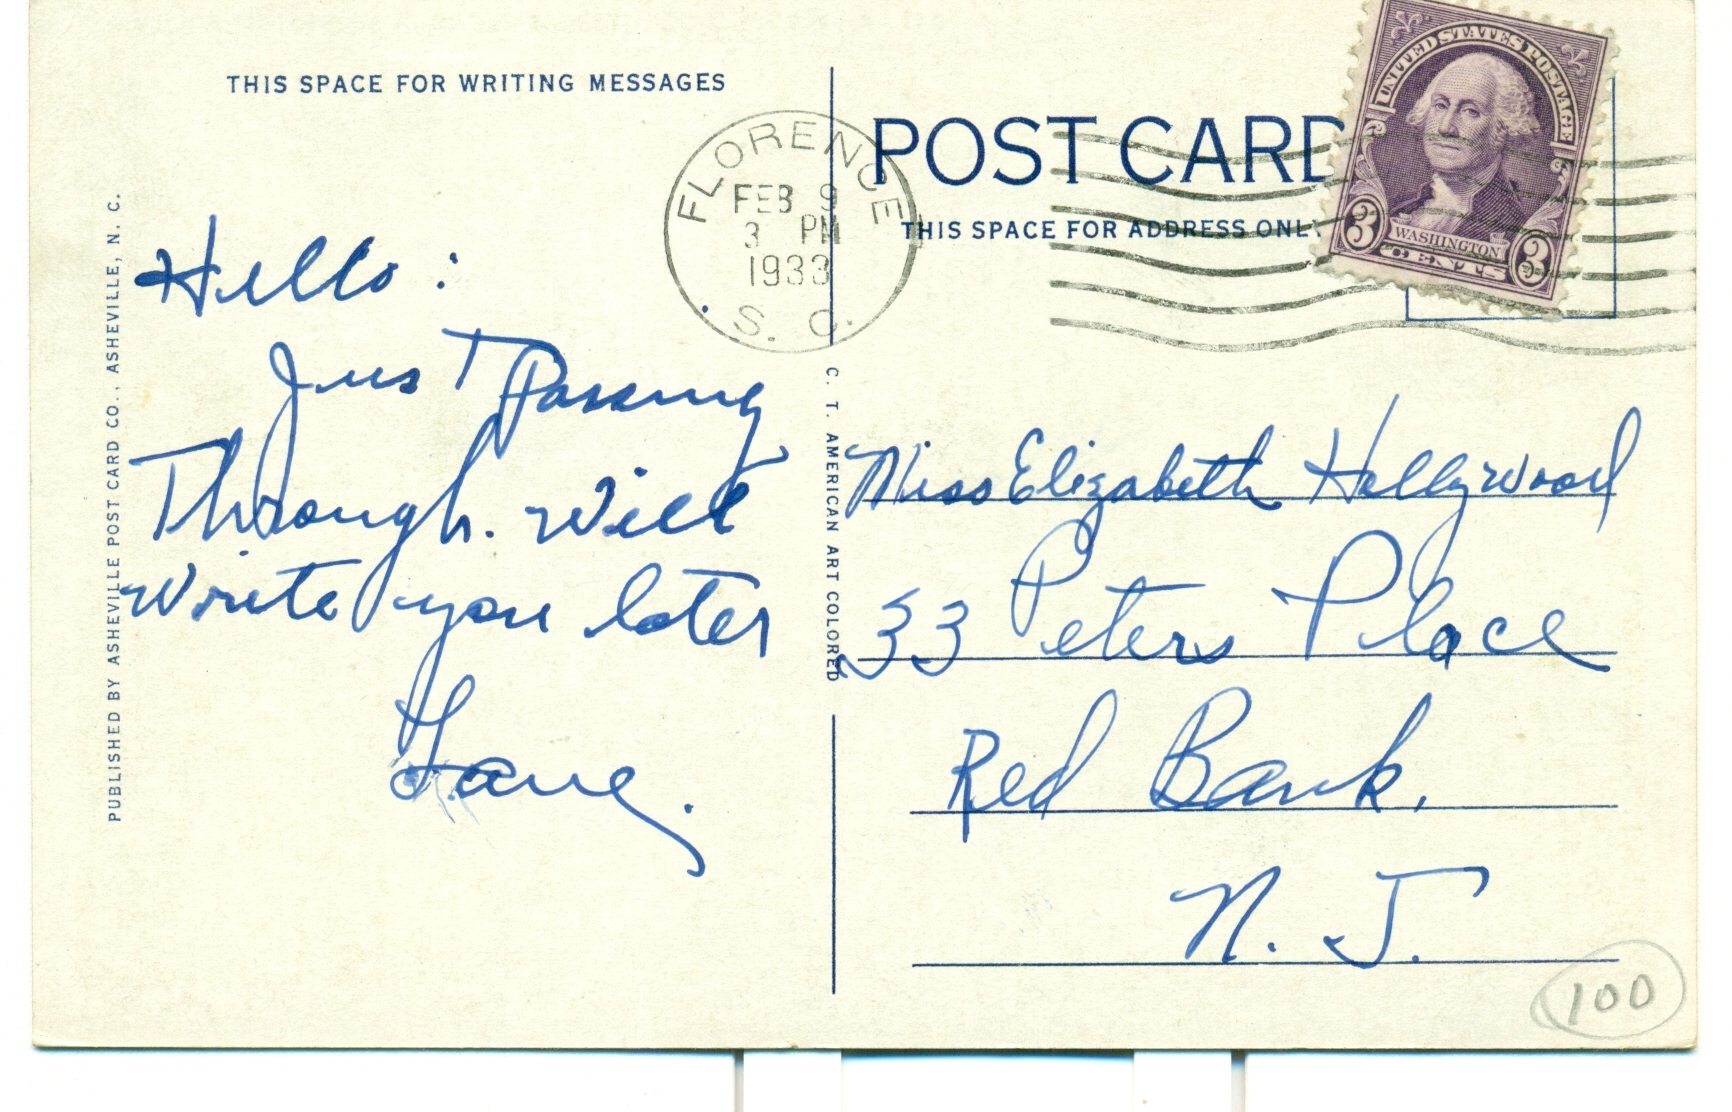 THIS SPACE FOR WRITING MESSAGES
PUBLISHED BY ASHEVILLE POST CARD CO., ASHEVILLE, N. C.
Hello:
Just Passing
Through. Will
Write you later
FLORENCE
FEB 9
3 PM
1933
S. C.
C. T. AMERICAN ART COLORED
POST CARD
THIS SPACE FOR ADDRESS ONLY
UNITED STATES POSTAGE
3 WASHINGTON 3
CENTS
Miss Elizabeth Hollywood
33 Peters Place
Red Bank,
N. J.
100